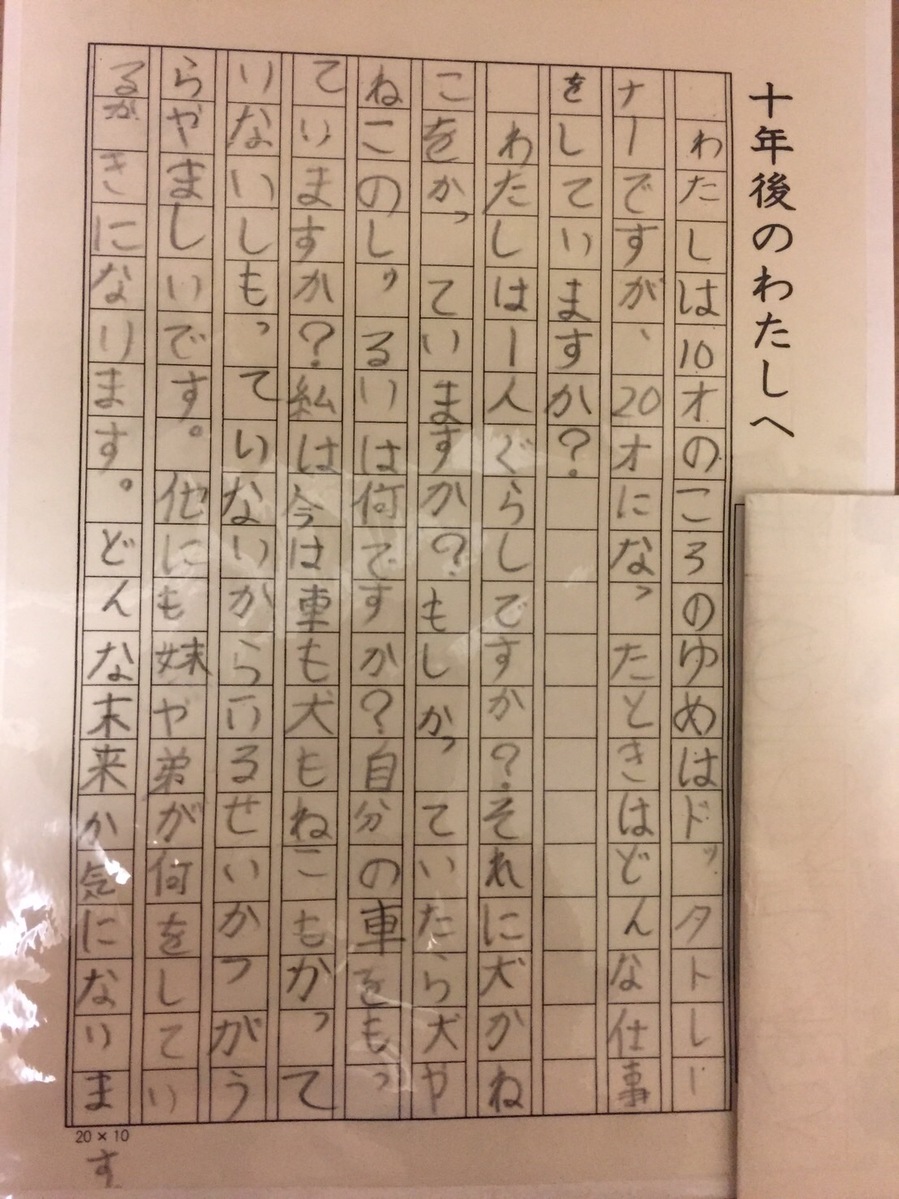 十年後のわたしへ
わたしは10才のころのゆめはドッタトレー
ナーですが、20才になったときはどんな仕事
をしていますか?
わたしは一人ぐらしですか?それに犬かね
こをかっていますか?もしかっていたら犬や
ねこのしゅるいは何ですか?自分の車をもっ
ていますか?私は今は車も犬もねこもかって
いないしもっていないからいるせいかつがう
らやましいです。他にも妹や弟が何をしてい
るがきになります。どんな末来か気になりま
す
20×10